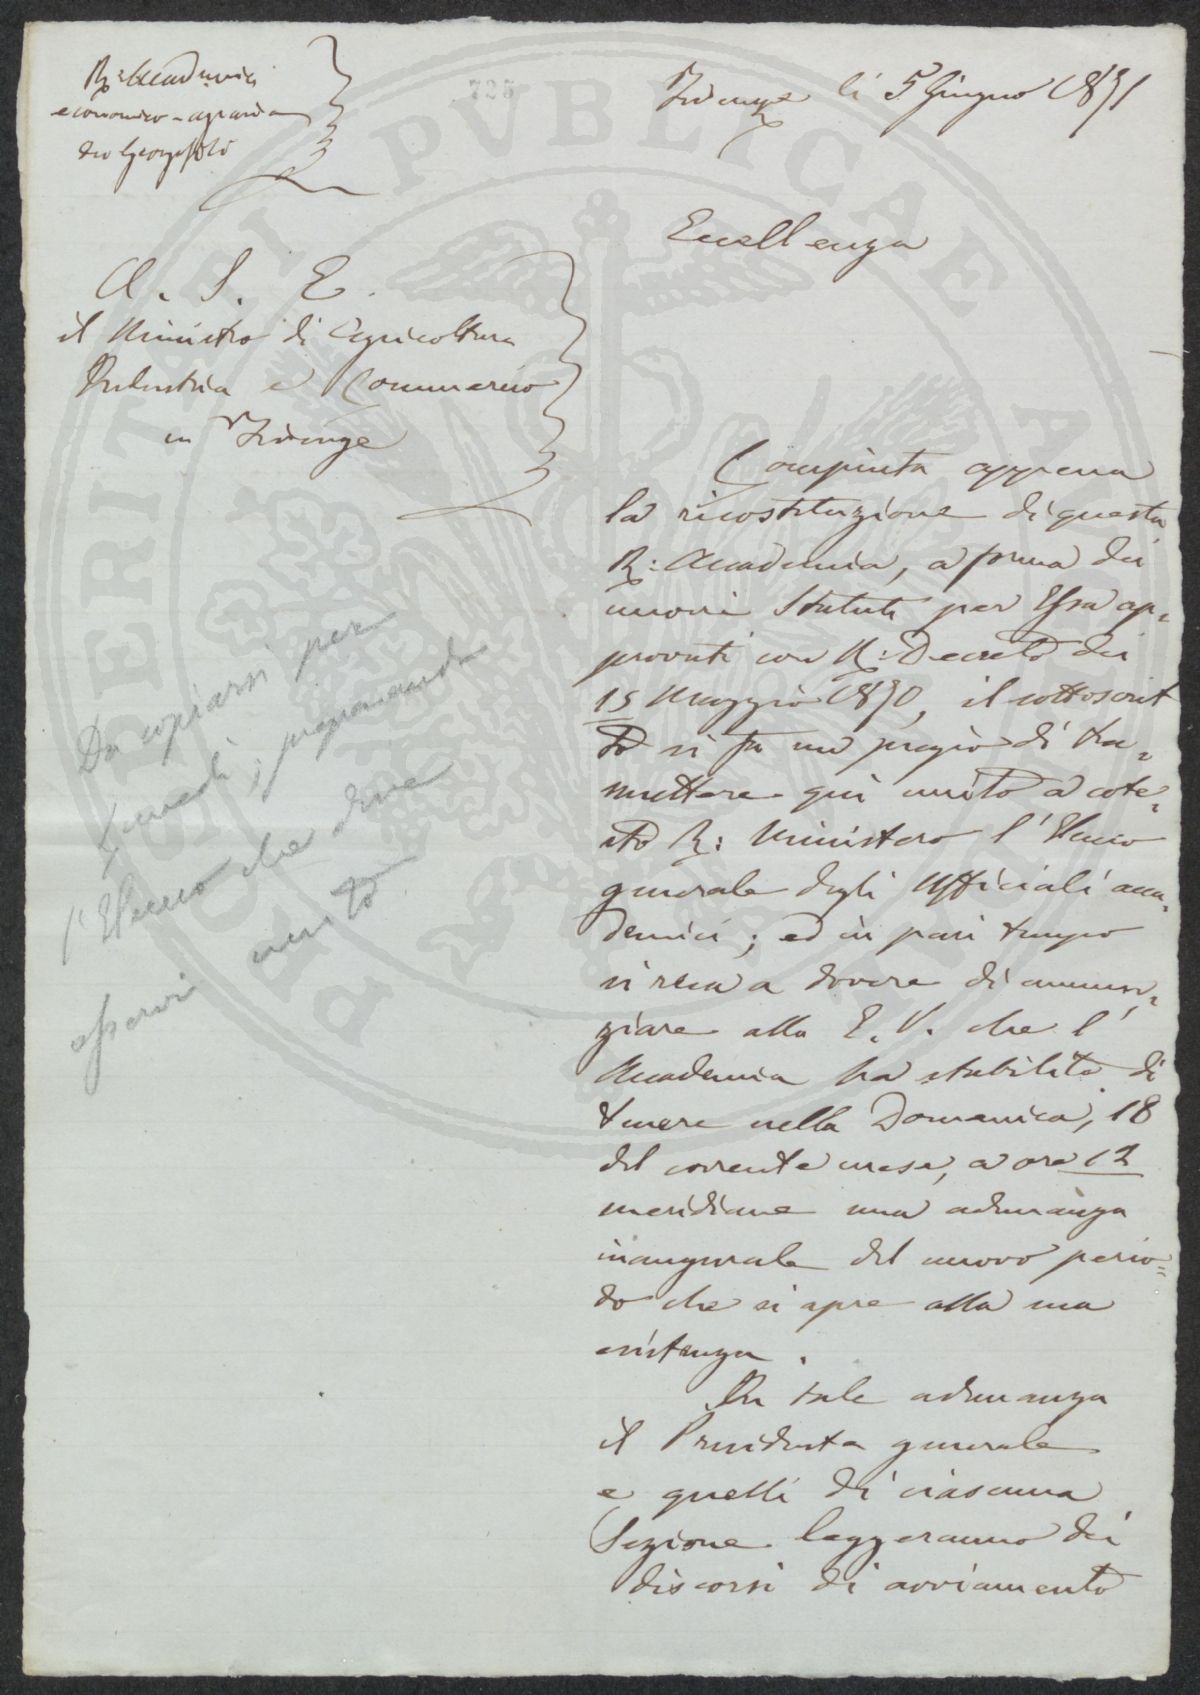 R: Accademia
economico-agraria
dei Georgofili
725
Firenze li 5 Giugno 1871
Eccellenza
A. S. E.
il Ministro di Agricoltura
Industria e Commercio
in Firenze
Compiuta appena
la ricostituzione di questa
R: Accademia, a forma dei
nuovi Statuti per Essa ap=
provati con R: Decreto dei
15 Maggio 1870, il sottoscrit
to si fa un pregio di tra=
mettere qui unito a cote=
sto R: Ministero l'Elenco
generale degli Ufficiali acca=
demici; ed in pari tempo
si reca a dovere di annun=
ziare alla E. V. che l'
Accademia ha stabilito di
tenere nella Domenica, 18
del corrente mese, a ore 12
meridiane una adunanza
inaugurale del nuovo perio=
do che si apre alla sua
esistenza.
In tale adunanza
il Presidente generale
e quelli di ciascuna
Sezione leggeranno dei
discorsi di avviamento
Da copiarsi per
l'Elenco che deve
esservi unito
PERITATI PVBLICAE AVGENDAE PRO